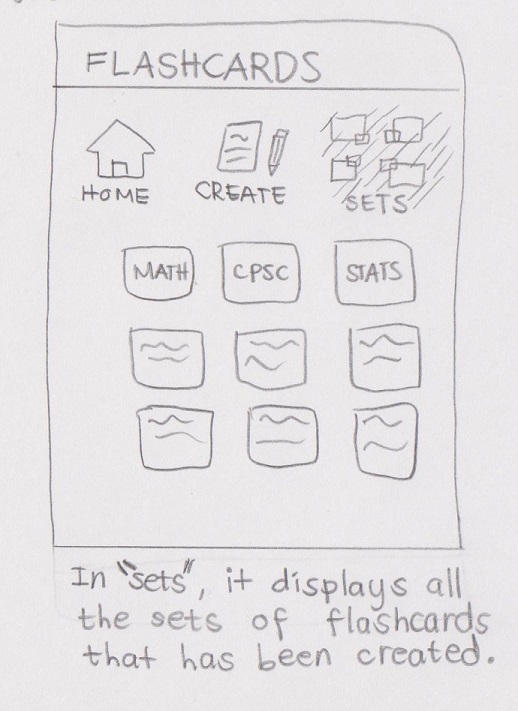 FLASHCARDS
HOME CREATE SETS
MATH CPSC STATS
In "sets", it displays all
the sets of flashcards
that has been created.